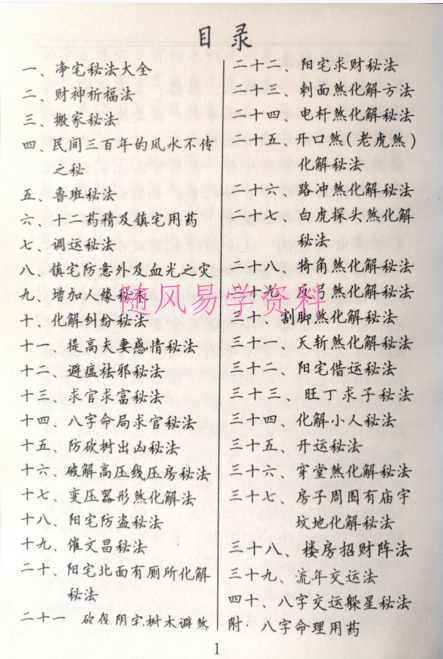 目录
一、净宅秘法大全
二、财神祈福法
三、搬家秘法
四、民间三百年的风水不传
之秘
五、鲁班秘法
六、十二药精及镇宅用药
七、调运秘法
八、镇宅防意外及血光之灾
九、增加人缘秘术
十、化解纠纷秘法
十一、提高夫妻感情秘法
十二、避瘟祛邪秘法
十三、求官求富秘法
十四、八字命局求官秘法
十五、防砍树出凶秘法
十六、破解高压线压房秘法
十七、变压器形煞化解法
十八、阳宅防盗秘法
十九、催文昌秘法
二十、阳宅北面有厕所化解
秘法
二十一 砍伐阴宅树木避煞
二十二、阳宅求财秘法
二十三、刺面煞化解方法
二十四、电杆煞化解秘法
二十五、开口煞(老虎煞)
化解秘法
二十六、路冲煞化解秘法
二十七、白虎探头煞化解
秘法
二十八、犄角煞化解秘法
二十九、反弓煞化解秘法
三十、割脚煞化解秘法
三十一、天斩煞化解秘法
三十二、阳宅借运秘法
三十三、旺丁求子秘法
三十四、化解小人秘法
三十五、开运秘法
三十六、穿堂煞化解秘法
三十七、房子周围有庙宇
坟地化解秘法
三十八、楼房招财阵法
三十九、流年交运法
四十、八字交运躲星秘法
附、八字命理用药
随风易学资料
1